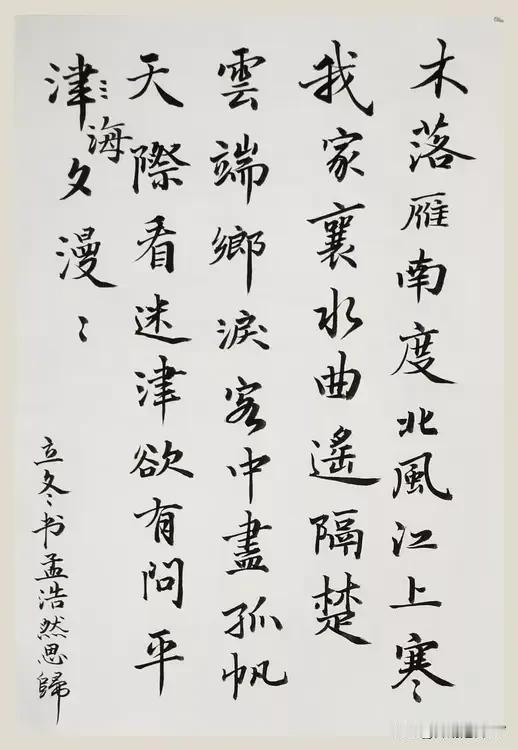 木落雁南度北風江上寒
我家襄水曲遙隔楚
雲端鄉淚客中盡孤帆
天際看迷津欲有問平
津海夕漫〻
立冬书孟浩然思歸